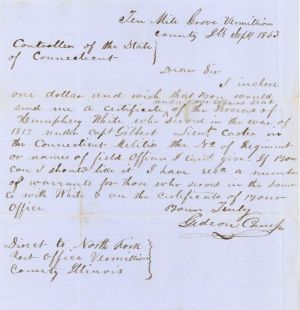 Ten Mile Grove Vermillion
County Ills Sept 1853
Controller of the State
of Connecticut
Dear Sir
I inclose
one dollar and wish that you would
under your official seal
send me a certificate of the services of
Humphrey White who served in the war of
1812 under Capt Gilbert Lieut Carter in
the Connecticut Militia the No of Regiment
or names of field Officers I cant give. If you
can I should like it I have recd a number
of warrants for Men who served in the same
Co with White & on the certificate of your
Office
Yours Truly
Gideon Camp
Direct to North Fork
Post Office Vermillion
County Illinois